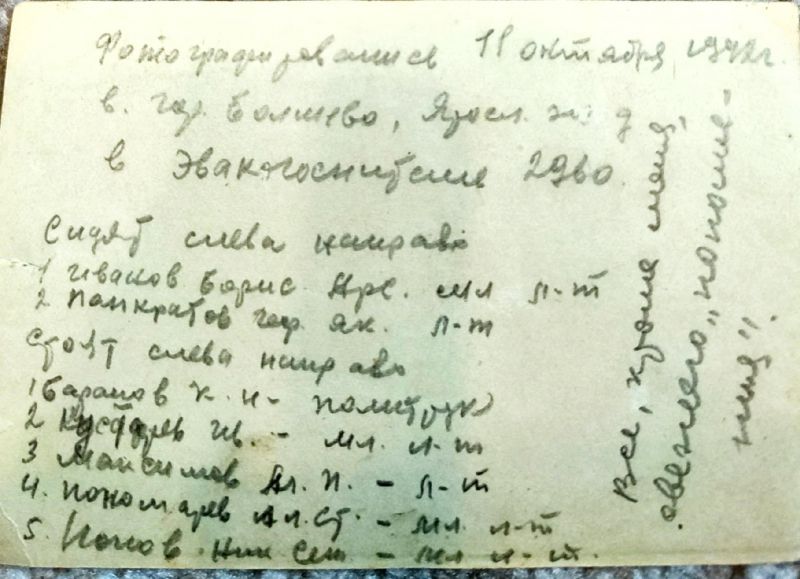 Фотографировались 11 октября 1942г.
в. гор. Болшево, Яросл. ж. д
в Эвакогоспитале 2980
Сидят слева направо
1 Иванов Борис Арс. мл л-т
2 Панкратов гер. як. л-т
Стоят слева направо
1 Баранов К. Н- политрук
2 ив. - мл. л-т
3 Максимов Ал. П. - л-т
4. Пономарев Ал. Ст. - мл. л-т
5. Попов Ник Сем - мл л-т.
Все, кроме меня,
"пополне-
ния".